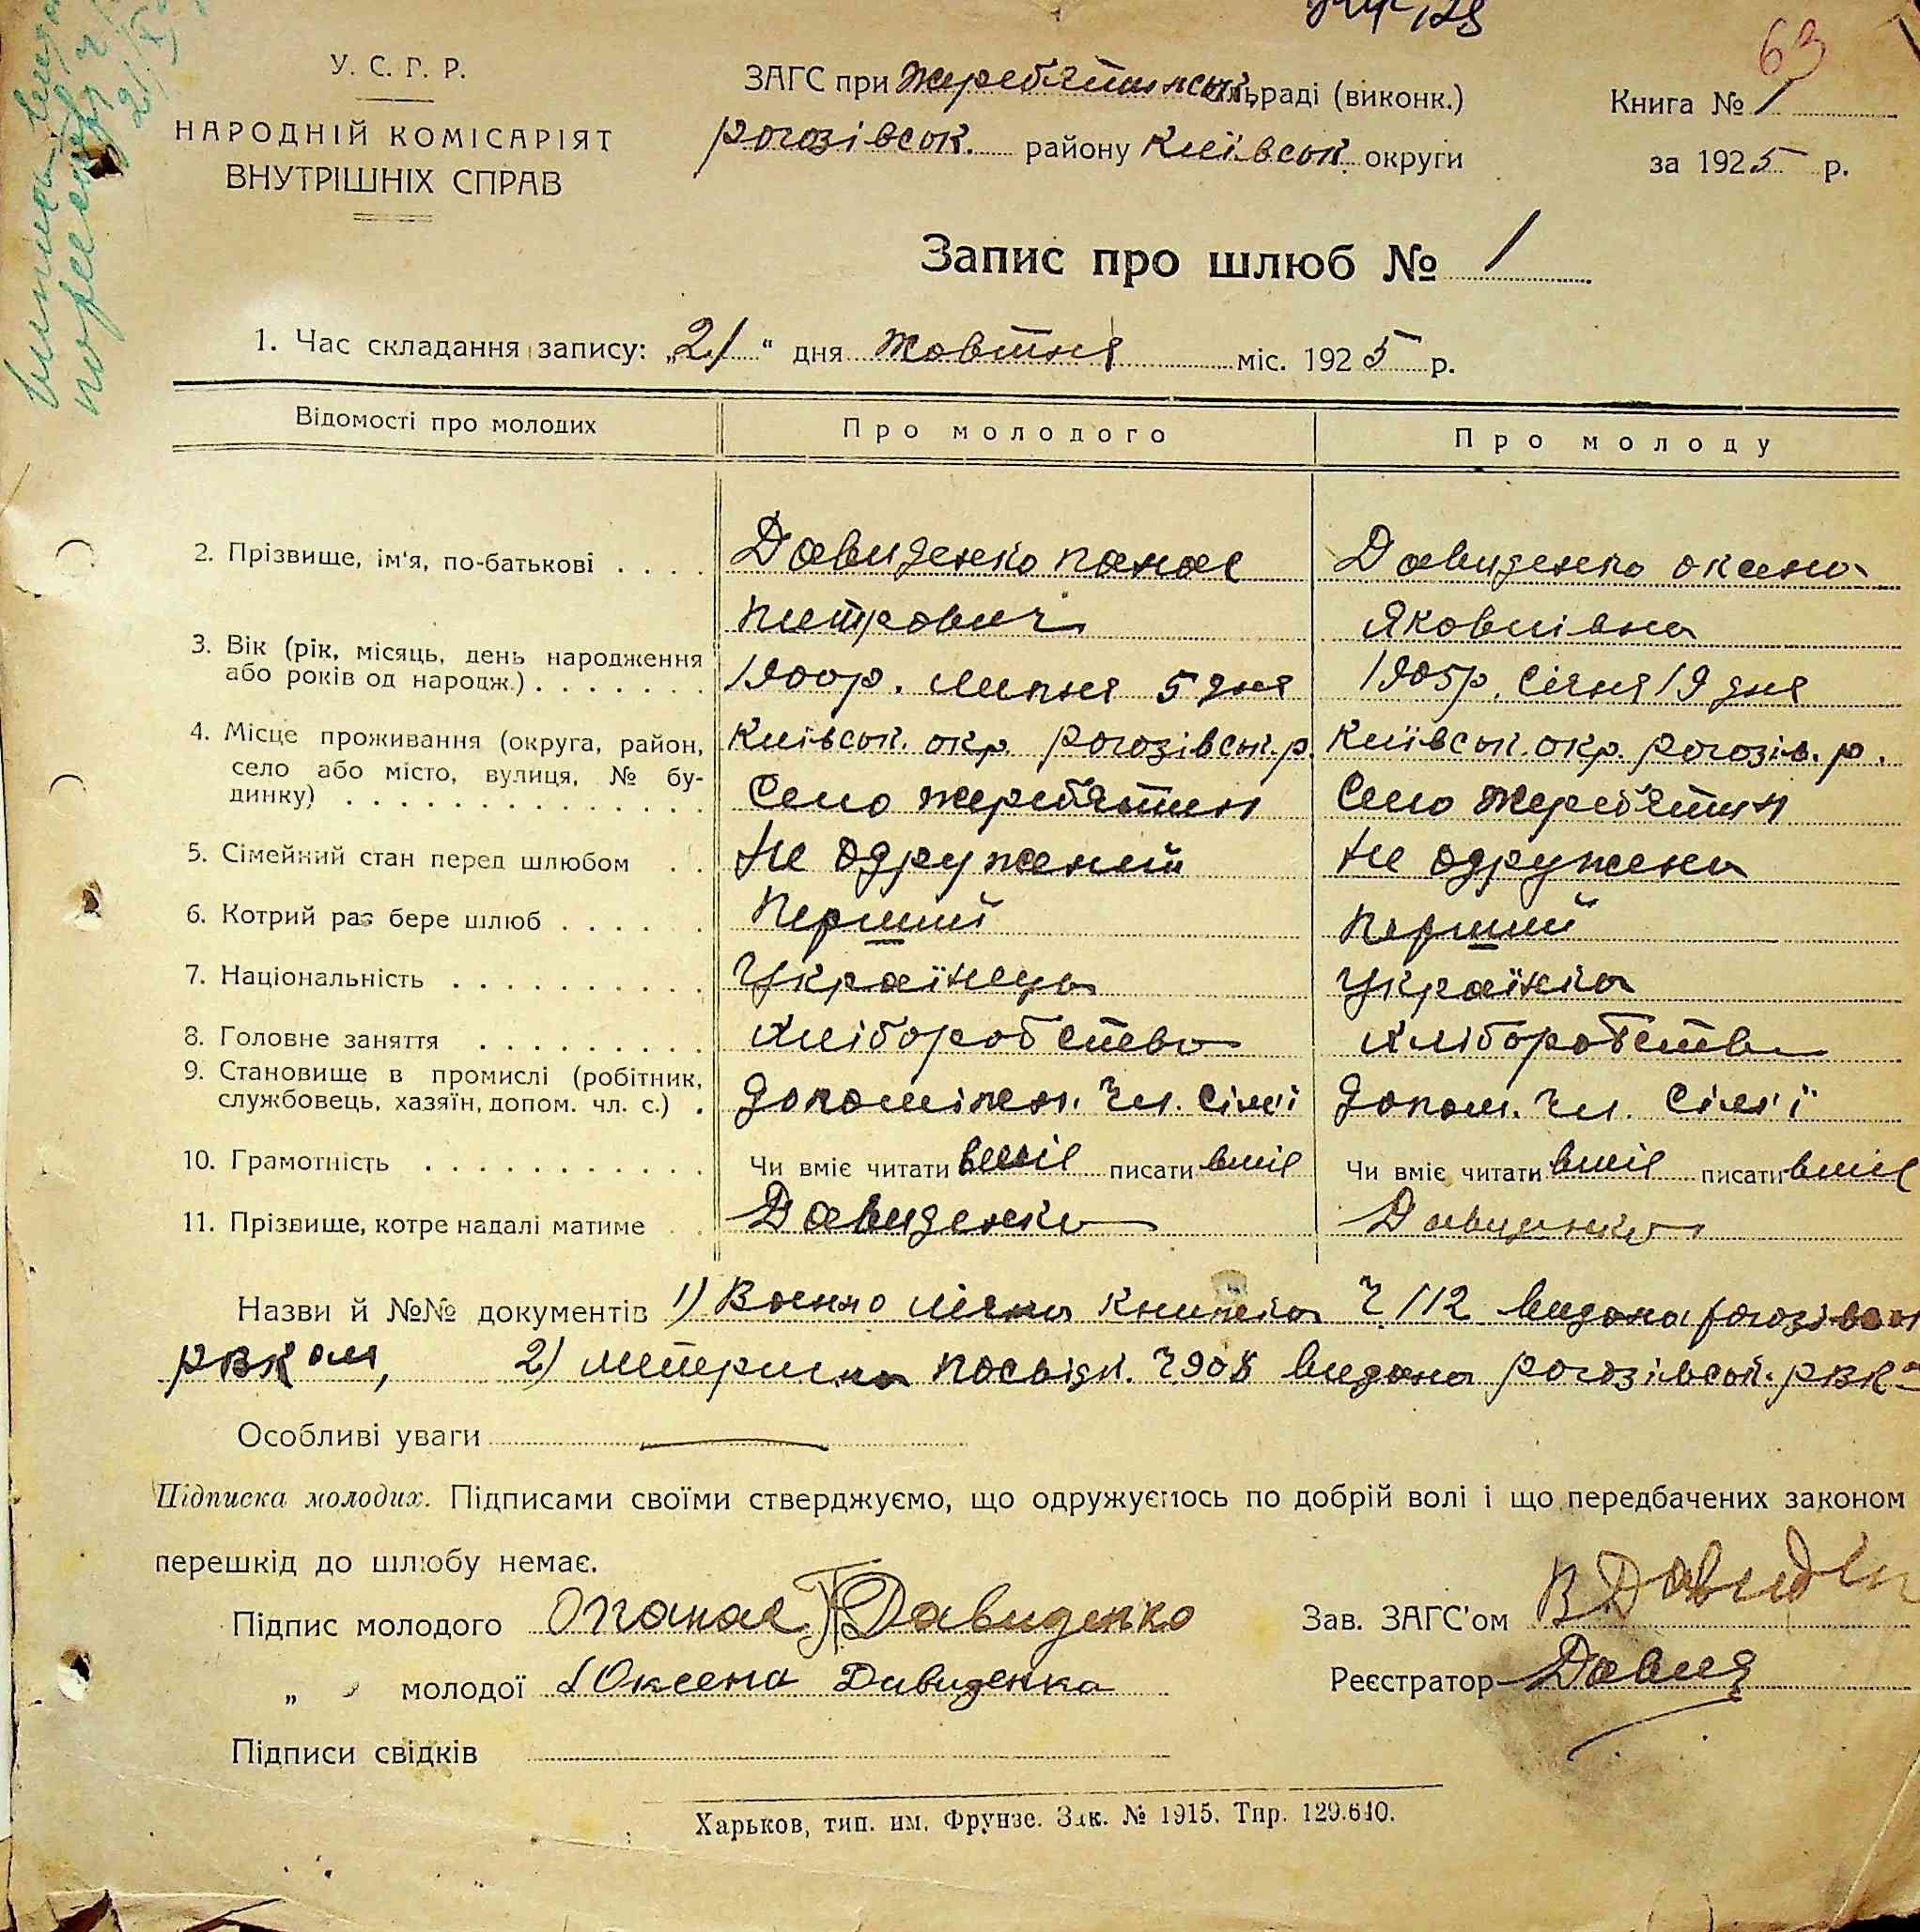 63
У. С. Г. Р.
НАРОДНІЙ КОМІСАРІЯТ
ВНУТРІШНІХ СПРАВ
ЗАГС при Жеребятинськ. сільраді (виконк.)
Рогозівськ. району Київськ. округи
Книга № 1
за 1925 р.
Запис про шлюб № 1
1. Час складання запису: „21“ дня жовтня міс. 1925 р.
Відомості про молодих Про молодого Про молоду
2. Прізвище, ім'я, по-батькові . . . . Давиденко панас Давиденко оксена
Петрович Яковлівна
3. Вік (рік, місяць, день народження
або років од народж.) . . . . . . . 1900р. липня 5 дня 1905р. Січня 19 дня
4. Місце проживання (округа, район, Київськ. окр. Рогозівськ. р. Київськ. окр. Рогозів. р.
село або місто, вулиця, № бу-
динку) . . . . . . . . . . . . . . Село жеребятин Село Жеребятин
5. Сімейний стан перед шлюбом . . Не одружений Не одружена
6. Котрий раз бере шлюб . . . . . . Перший Перший
7. Національність . . . . . . . . . . Українець Українка
8. Головне заняття . . . . . . . . . Хліборобство Хліборобство
9. Становище в промислі (робітник,
службовець, хазяїн, допом. чл. с.) . допоміжн. чл. сім'ї допом. чл. сім'ї
10. Грамотність . . . . . . . . . . . Чи вміє читати вміє писати вміє Чи вміє читати вміє писати вміє
11. Прізвище, котре надалі матиме . . Давиденко Давиденко
Назви й №№ документів 1) Военно книжка ч. 112 видана Рогозівськ
РВКом, 2) метрична посвідч. ч. 908 видана Рогозівськ. РВК
Особливі уваги
Підписка молодих. Підписами своїми стверджуємо, що одружуємось по добрій волі і що передбачених законом
перешкід до шлюбу немає.
Підпис молодого Опанас П Давиденко
„ молодої Оксена Давиденка
Зав. ЗАГС'ом В Давиден
Реєстратор Давид
Підписи свідків
Харьков, тип. им. Фрунзе. Зак. № 1915. Тир. 129.640.